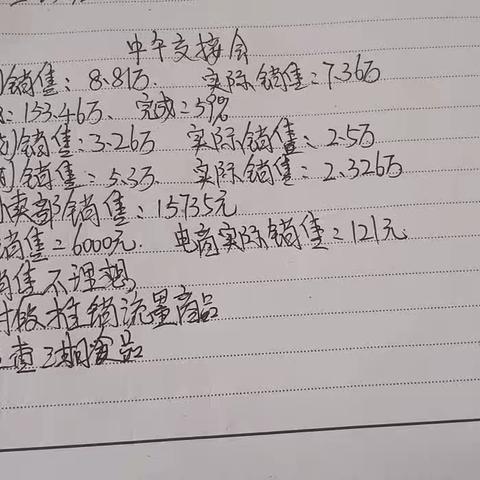 中午交接会
销售：8.81万    实际销售：7.36万
：153.46万、完成：59%
划销售：3.26万    实际销售：2.5万
销售：5.3万、实际销售：2.326万
卖部销售：15735元
销售：6000元.    电商实际销售：121元
销售不理想
时段推销流量商品
查三期商品